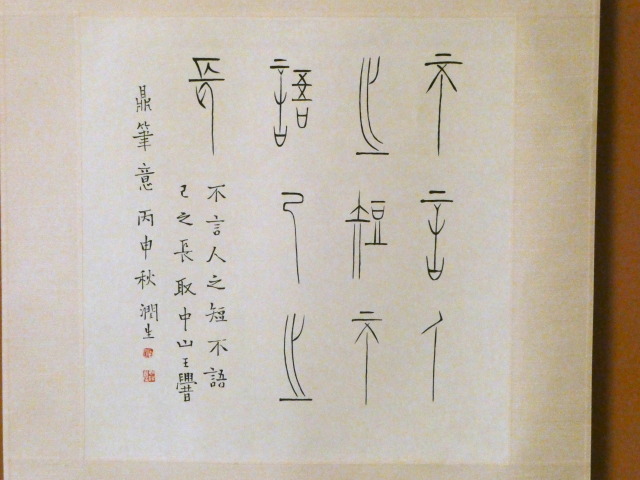 不言人
之短不
語己之
長
不言人之短不語
己之長取中山王𰯼
鼎筆意丙申秋潤生